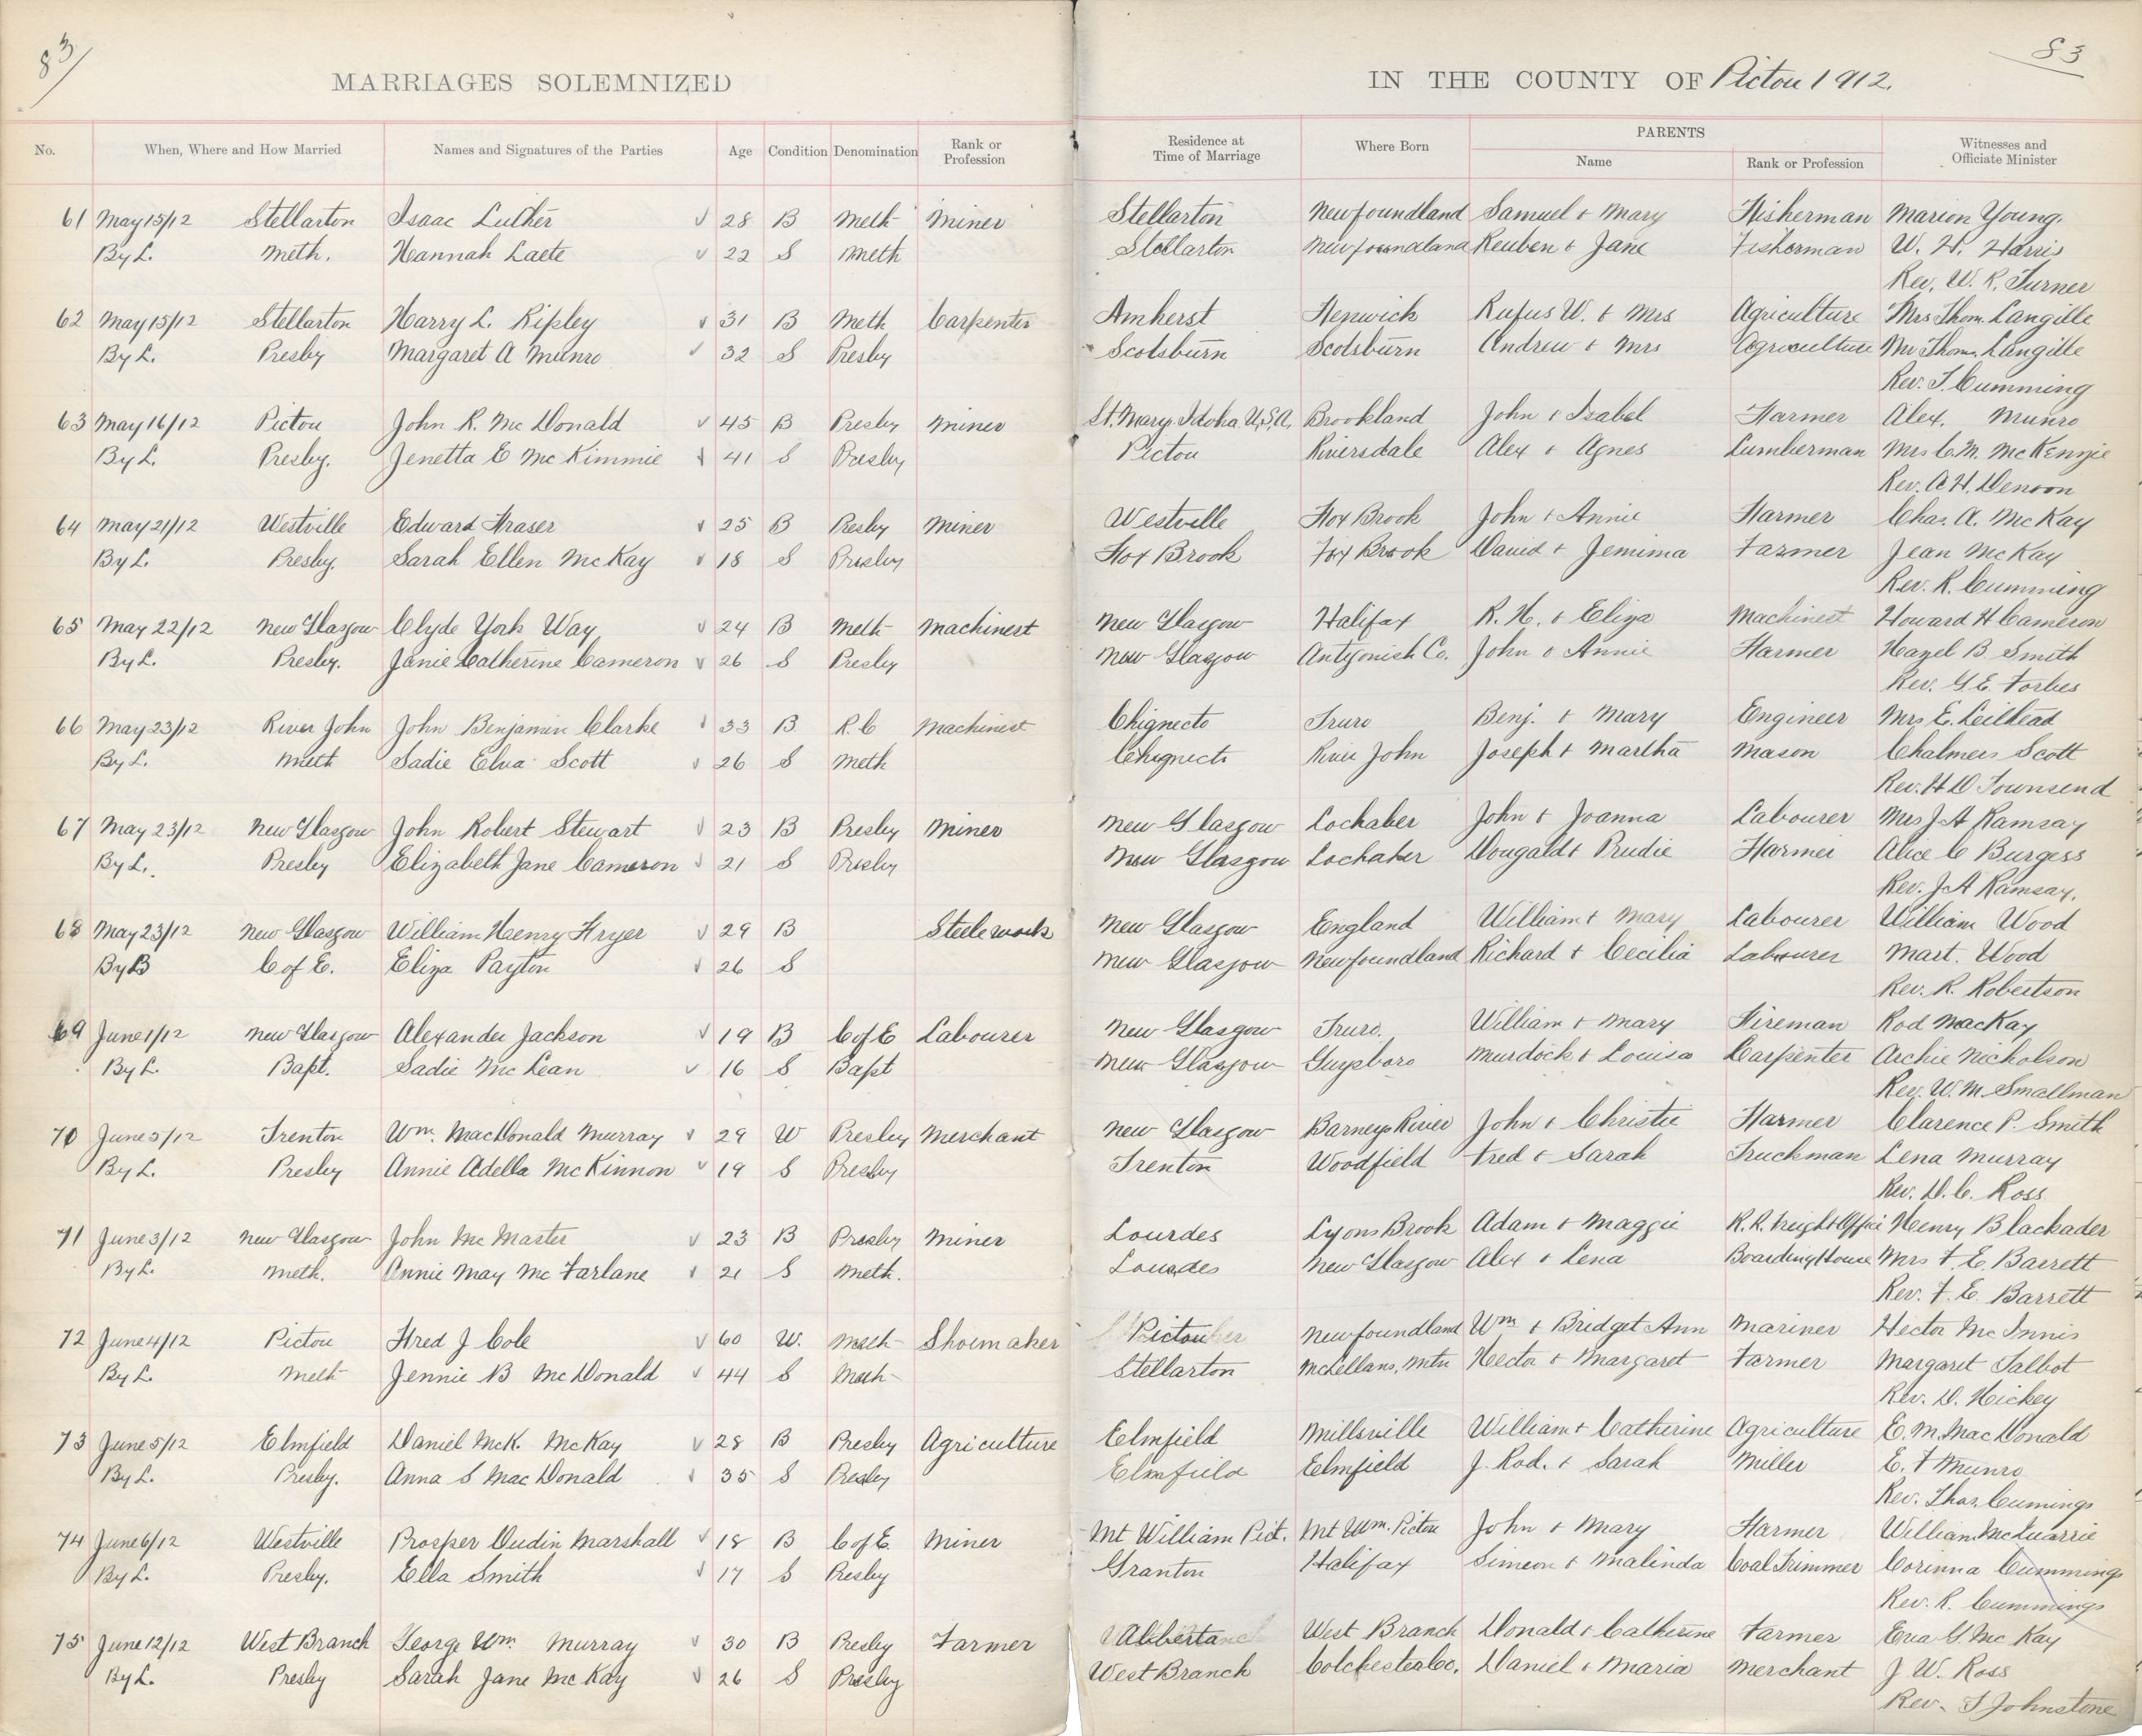 83
83
MARRIAGES SOLEMNIZED IN THE COUNTY OF Pictou 1912.
No. When, Where and How Married Names and Signatures of the Parties Age Condition Denomination Rank or Profession Residence at Time of Marriage Where Born PARENTS Name Rank or Profession Witnesses and Officiate Minister
61 May 15/12 Stellarton Isaac Luther 28 B Meth Miner Stellarton Newfoundland Samuel + Mary Fisherman Marion Young.
By L. Meth. Hannah Laete 22 S Meth Stellarton Newfoundland Reuben + Jane Fisherman W. H. Harris
Rev. W. R. Turner
62 May 15/12 Stellarton Harry L. Ripley 31 B Meth Carpenter Amherst Fenwick Rufus W. + Mrs Agriculture Mrs Thom. Langille
By L. Presby Margaret A Munro 32 S Presby Scotsburn Scotsburn Andrew + Mrs Agriculture Mr Thom. Langille
Rev. T. Cumming
63 May 16/12 Pictou John R. McDonald 45 B Presby Miner St. Mary. Idoha. U.S.A. Brookland John + Isabel Farmer Alex. Munro
By L. Presby. Jenetta E McKimmie 41 S Presby Pictou Riversdale Alex + Agnes Lumberman Mrs C.M. McKenzie
Rev. A H. Denoon
64 May 21/12 Westville Edward Fraser 25 B Presby Miner Westville Fox Brook John + Annie Farmer Chas. A. McKay
By L. Presby. Sarah Ellen McKay 18 S Presby Fox Brook Fox Brook David + Jemima Farmer Jean McKay
Rev. R. Cumming
65 May 22/12 New Glasgow Clyde York Way 24 B Meth Machinest New Glasgow Halifax R. H. + Eliza Machinest Howard H Cameron
By L. Presby. Janie Catherine Cameron 26 S Presby New Glasgow Antigonish Co. John + Annie Farmer Hazel B. Smith
Rev. G E. Forbes
66 May 23/12 River John John Benjamin Clarke 33 B R.C Machinest Chignecto Truro Benj. + Mary Engineer Mrs E. Leithead
By L. Meth Sadie Elva Scott 26 S Meth Chignecto River John Joseph + Martha Mason Chalmers Scott
Rev. H D Townsend
67 May 23/12 New Glasgow John Robert Stewart 23 B Presby Miner New Glasgow Lochaber John + Joanna Labourer Mrs J A Ramsay
By L. Presby Elizabeth Jane Cameron 21 S Presby New Glasgow Lochaber Dougald + Prudie Farmer Alice C Burgess
Rev. J A Ramsay.
68 May 23/12 New Glasgow William Henry Fryer 29 B Steelework New Glasgow England William + Mary Labourer William Wood
By B C of E. Eliza Payton 26 S New Glasgow Newfoundland Richard + Cecilia Labourer Mart. Wood
Rev. R. Robertson
69 June 1/12 New Glasgow Alexander Jackson 19 B C of E Labourer New Glasgow Truro. William + Mary Fireman Rod MacKay
By L. Bapt. Sadie McLean 16 S Bapt New Glasgow Guysboro Murdock + Louisa Carpenter Archie Nicholson
Rev. W. M. Smallman
70 June 5/12 Trenton Wm. MacDonald Murray 29 W Presby Merchant New Glasgow Barneys River John + Christie Farmer Clarence P. Smith
By L. Presby Annie Adella McKinnon 19 S Presby Trenton Woodfield Fred + Sarah Truckman Lena Murray
Rev. D. C. Ross
71 June 3/12 New Glasgow John McMaster 23 B Presby Miner Lourdes Lyons Brook Adam + Maggie R.R. Freight Offic Henry Blackader
By L. Meth. Annie May McFarlane 21 S Meth. Lourdes New Glasgow Alex + Lena Boarding House Mrs F. E. Barrett
Rev. F. E. Barrett
72 June 4/12 Pictou Fred J Cole 60 W. Meth Shoemaker Pictou Newfoundland Wm + Bridget Ann Mariner Hector McInnis
By L. Meth Jennie B McDonald 44 S Meth Stellarton McLellans. Mtn Hector + Margaret Farmer Margaret Talbot
Rev. D. Hickey
73 June 5/12 Elmfield Daniel McK. McKay 28 B Presby Agriculture Elmfield Millsville William + Catherine Agriculture E. M. MacDonald
By L. Presby. Anna S MacDonald 35 S Presby Elmfield Elmfield J. Rod. + Sarah Miller E. F Munro
Rev. Thos. Cumings
74 June 6/12 Westville Prosper Oudin Marshall 18 B C of E. Miner Mt William Pict. Mt Wm. Pictou John + Mary Farmer William McQuarrie
By L. Presby. Ella Smith 17 S Presby Granton Halifax Simeon + Malinda Coal Trimmer Corinna Cummings
Rev. R. Cummings
75 June 12/12 West Branch George Wm. Murray 30 B Presby Farmer Alberta West Branch Donald + Catherine Farmer Eva G. McKay
By L. Presby Sarah Jane McKay 26 S Presby West Branch Colchester Co. Daniel + Maria Merchant J W. Ross
Rev. T Johnstone